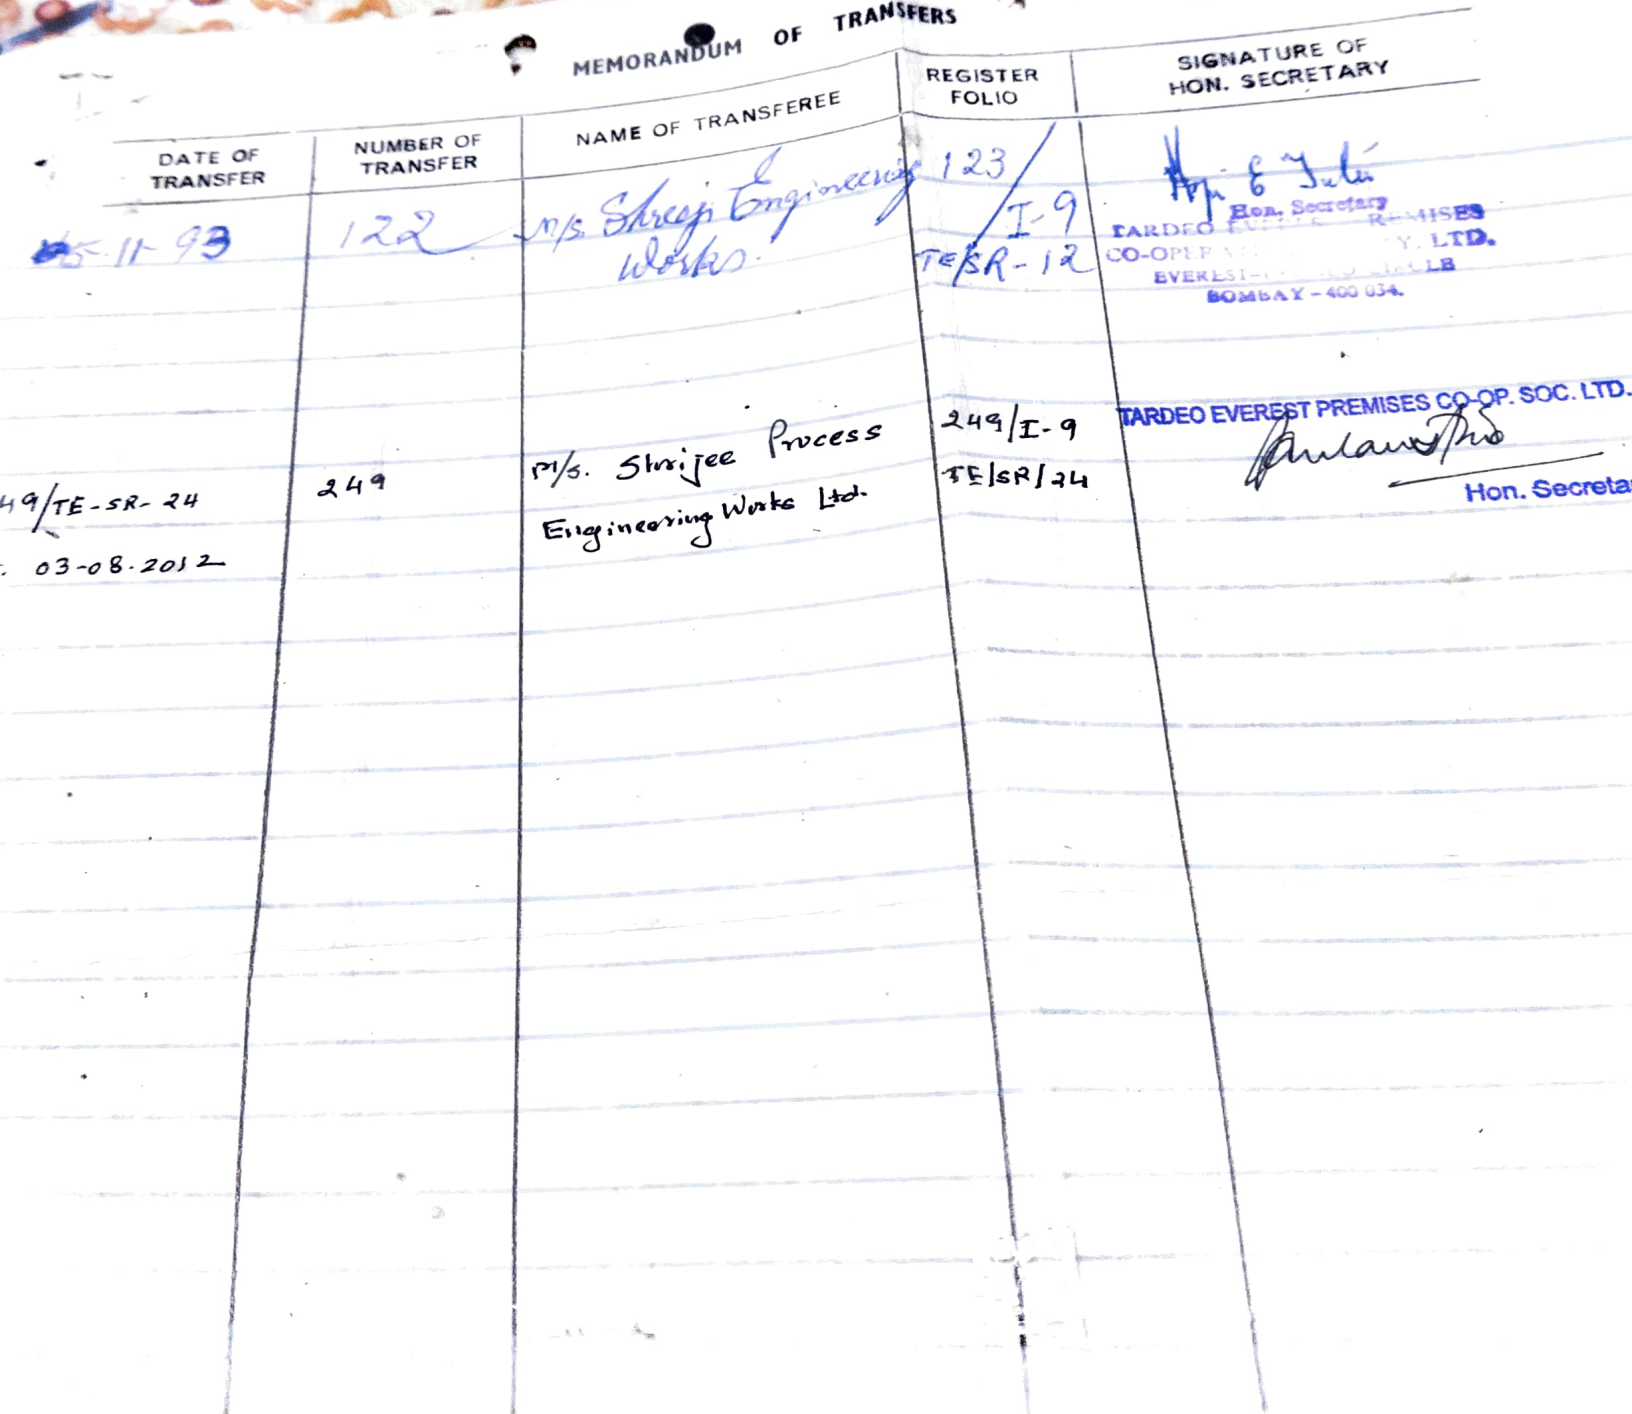 MEMORANDUM OF TRANSFERS
DATE OF TRANSFER
NUMBER OF TRANSFER
NAME OF TRANSFEREE
REGISTER FOLIO
SIGNATURE OF HON. SECRETARY
5-11-93
122
M/s. Shreeji Engineering
Works.
123/
I-9
TE/SR-12
Hon. Secretary
TARDEO
CO-OPER Y. LTD.
BOMBAY - 400 034.
49/TE-SR-24
03-08-2012
249
M/s. Shrijee Process
Engineering Works Ltd.
249/I-9
TE/SR/24
TARDEO EVEREST PREMISES CO-OP. SOC. LTD.
Hon. Secreta